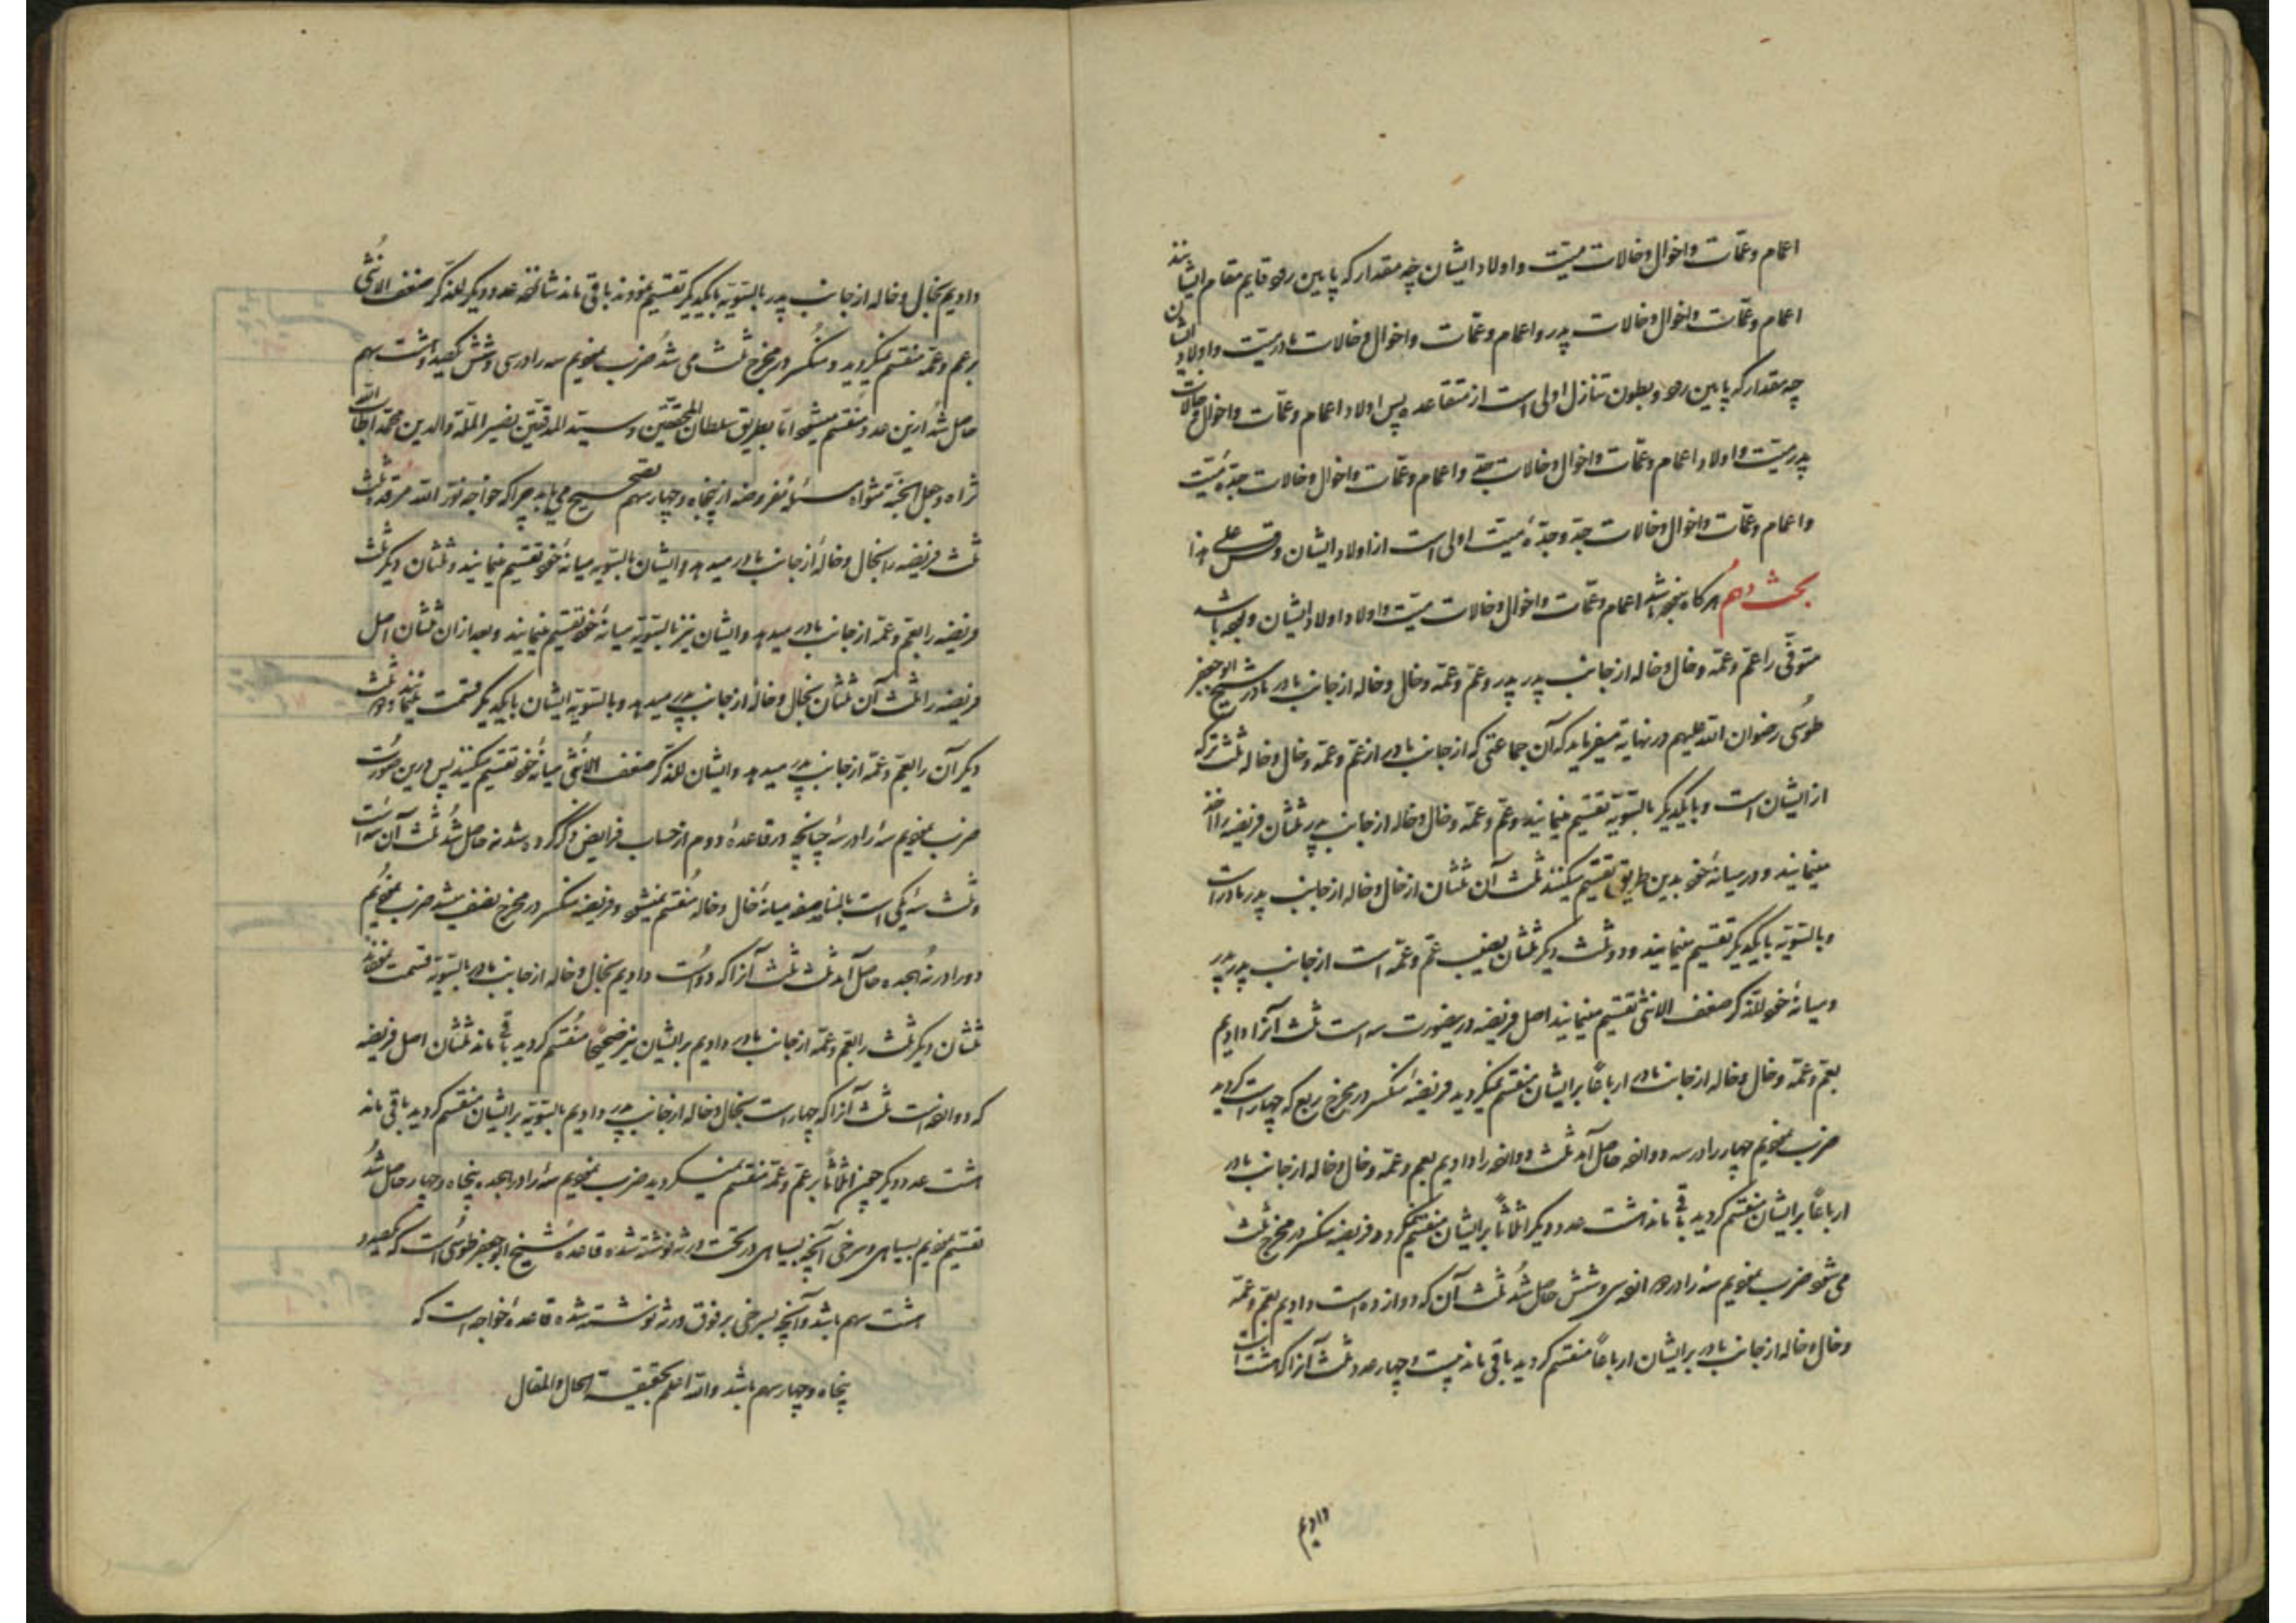 اعمام و عمّات و اخوال و خالات میّت و اولاد ایشان چه مقدار که پایین رود قایم مقام ایشانند
اعمام و عمّات و اخوال و خالات پدر و اعمام و عمّات و اخوال و خالات مادر میّت و اولاد ایشان
چه مقدار که پایین رود و بطون متنازل اولی است از متقاعده پس اولاد اعمام و عمّات و اخوال و خالات
پدر میّت و اولاد اعمام و عمّات و اخوال و خالات جدّ و اعمام و عمّات و اخوال و خالات جدّهٔ میّت
و اعمام و عمّات و اخوال و خالات جدّ و جدّهٔ میّت اولی است از اولاد ایشان و قس علی هذا
بحث دهم هرگاه نبوده باشد اعمام و عمّات و اخوال و خالات میّت و اولاد اولاد ایشان و بوده باشد
متوفّی را عمّ و عمّه و خال و خاله از جانب پدر پدر و عمّ و عمّه و خال و خاله از جانب مادر مادر شیخ ابو جعفر
طوسی رضوان الله علیهم در نهایه میفرماید که آن جماعتی که از جانب مادر از عمّ و عمّه و خال و خاله ثلث ترکه
از ایشان است و بایکدیگر بالسّویّه تقسیم مینمایند و عمّ و عمّه و خال و خاله از جانب پدر ثلثان فریضه را اخذ
مینمایند و در میانهٔ خود بدین طریق تقسیم میکنند ثلث آن ثلثان از خال و خاله از جانب پدر مادر است
و بالسّویّه بایکدیگر تقسیم مینمایند و دو ثلث دیگر ثلثان نصیب عمّ و عمّه است از جانب پدر پدر
و میانهٔ خود للذّکر ضعف الانثی تقسیم مینمایند اصل فریضه درینصورت سه است ثلث آنرا دادیم
بعمّ و عمّه و خال و خاله از جانب مادر ارباعًا بر ایشان منقسم نمیگردید فریضه منکسر در مخرج ربع که چهار است گردید
ضرب نمودیم چهار را در سه دوازده حاصل آمد ثلث دوازده را دادیم بعم و عمّه و خال و خاله از جانب مادر
ارباعًا بر ایشان منقسم گردید باقی ماند هشت عدد دیگر اثلاثًا بر ایشان منقسم نمیگردد فریضه منکسر در مخرج ثلث
می شود ضرب نمودیم سه را در دوازده سی و شش حاصل شد ثلث آن که دوازده است دادیم بعم و عمّه
و خال و خاله از جانب مادر بر ایشان ارباعًا منقسم گردید باقی ماند بیست و چهار عدد ثلث آنرا که هشت است
دادیم
دادیم بخال و خاله از جانب پدر بالسّویّه بایکدیگر تقسیم نمودند باقی ماند شانزده عدد دیگر للذّکر ضعف الانثی
بر عم و عمّه منقسم نمیگردید و منکسر در مخرج ثلث می شد ضرب نمودیم سه را در سی و شش یکصد و هشت سهم
حاصل شد ازین عدد منقسم میشود امّا بطریق سلطان المحقّقین و سیّد المدقّقین نصیر الملّة و الدین محمّد اطاب الله
ثراه و جعل الجنّة مثواه سهام مفروضه از پنجاه و چهار سهم تصحیح می یابد چرا که خواجه نوّر الله مرقده ثلث
ثلث فریضه را بخال و خاله از جانب مادر میدهد و ایشان بالسّویّه میانهٔ خود تقسیم مینمایند و ثلثان دیگر ثلث
فریضه را بعمّ و عمّه از جانب مادر میدهد و ایشان نیز بالسّویّه میانهٔ خود تقسیم مینمایند و بعد ازان ثلثان اصل
فریضه را ثلث آن ثلثان بخال و خاله از جانب پدر میدهد و بالسّویّه ایشان بایکدیگر قسمت مینمایند و دو ثلث
دیگر آن را بعمّ و عمّه از جانب پدر میدهد و ایشان للذّکر ضعف الانثی میانهٔ خود تقسیم میکنند پس درین صورت
ضرب نمودیم سه را در سه چنانچه در قاعدهٔ دوم از حساب فرایض ذکر کرده شد نه حاصل شد ثلث آن سه است
و ثلث سه یکی است بالمناصفه میانهٔ خال و خاله منقسم نمیشود و فریضه منکسر در مخرج نصف میشد ضرب نمودیم
دو را در نه هجده حاصل آمد ثلث ثلث آنرا که دو است دادیم بخال و خاله از جانب مادر بالسّویّه قسمت نمودند
ثلثان دیگر ثلث را بعم و عمّه از جانب مادر دادیم بر ایشان نیز صحیحًا منقسم گردید باقی ماند ثلثان اصل فریضه
که دوازده است ثلث آنرا که چهار است بخال و خاله از جانب پدر دادیم بالسّویّه بر ایشان منقسم گردید باقی ماند
هشت عدد دیگر چون اثلاثًا بر عمّ و عمّه منقسم نمیگردید ضرب نمودیم سه را در هجده پنجاه و چهار حاصل شد
تقسیم نمودیم بسیاهی و سرخی آنچه بسیاهی در تحت ورثه نوشته شده قاعدهٔ شیخ ابو جعفر طوسی است که یکصد و
هشت سهم باشد و آنچه بسرخی بر فوق ورثه نوشته شده قاعدهٔ خواجه است که
پنجاه و چهار سهم باشد و الله اعلم بحقیقة الحال و المقال